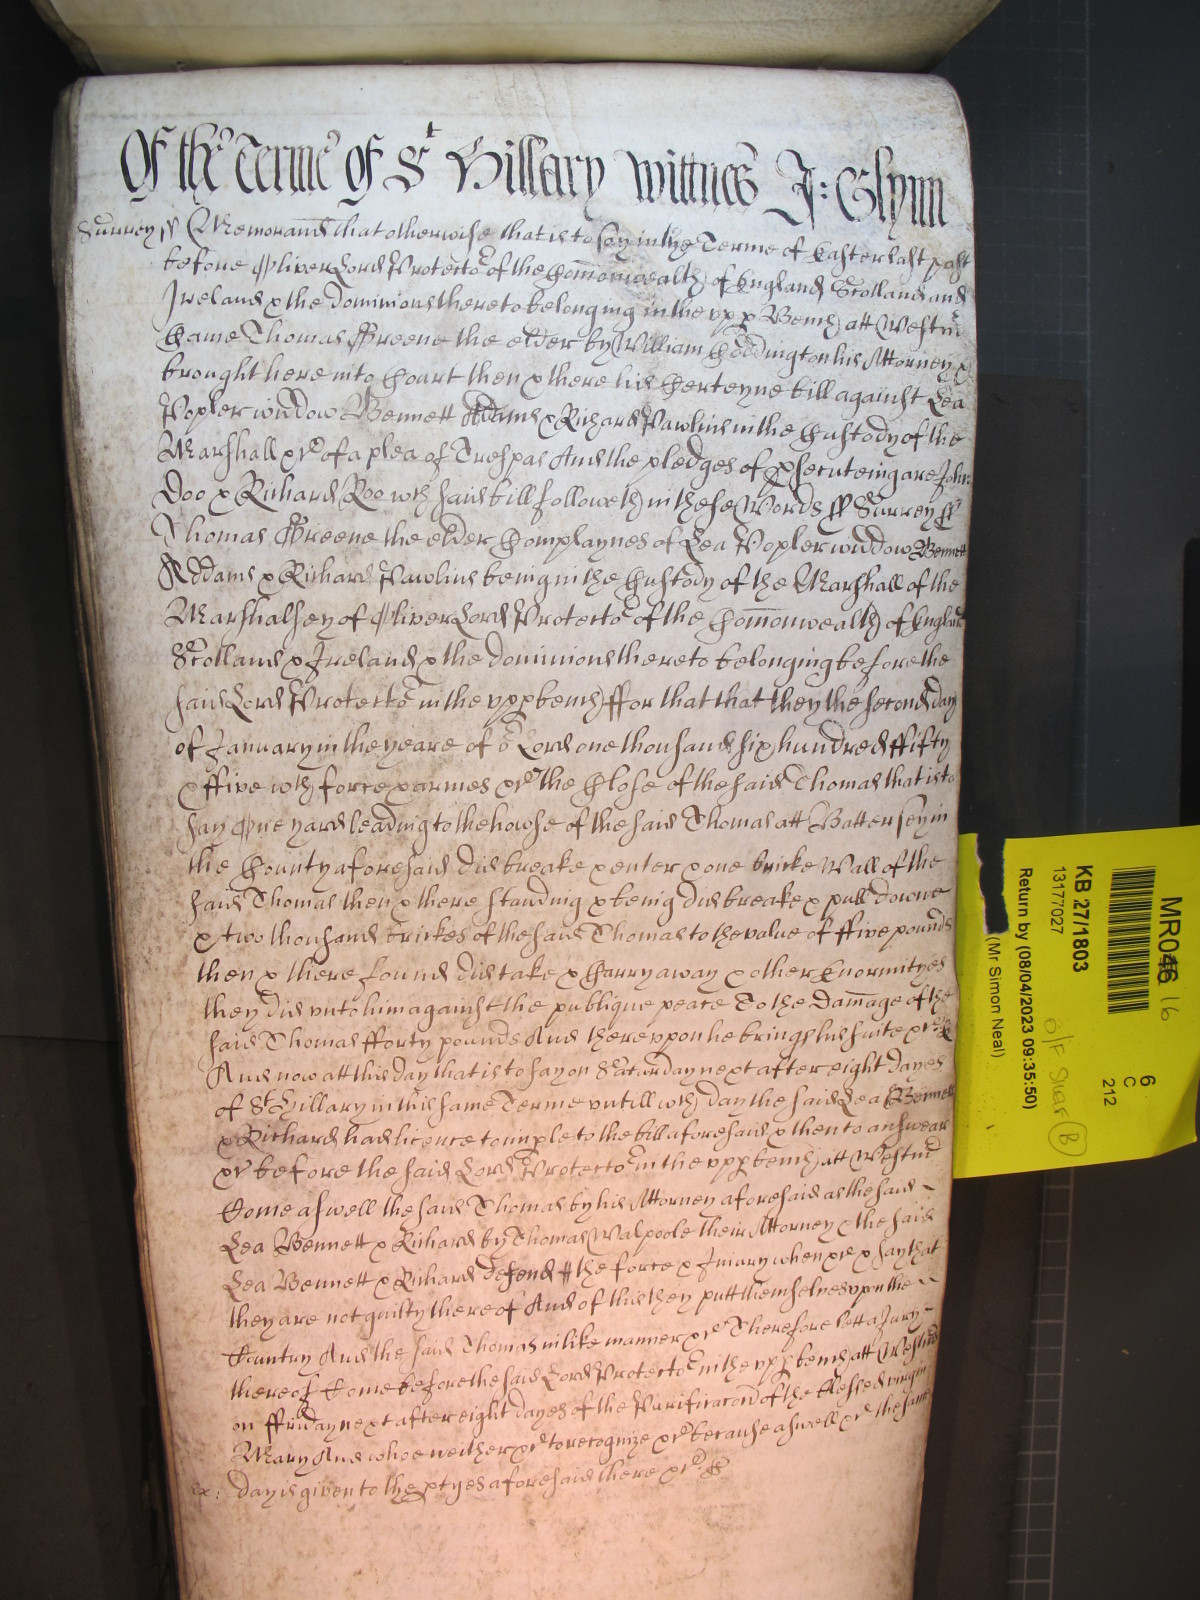 Of the Terme of St Hillary Wittnes J: Glynn
Surrey ss Memorand that otherwise that is to say in the Terme of Easter last past
before Oliver Lord Protector of the Comonwealth of England Scotland and
Ireland & the dominions thereto belonging in the vpp Bench att Westm
Came Thomas Greene the elder by William Coddington his Attorney &
brought here into Court then & there his Certeyne bill against Lea
Popler widdow Bennett Adams & Richard Pawlin in the Custody of the
Marshall &c of a plea of Trespas And the pledges of psecuteing are John
Doo & Richard Roo wch said bill followeth in these Words ss Surrey ss
Thomas Greene the elder Complaynes of Lea Popler widdow Bennett
Addams & Richard Pawlin being in the Custody of the Marshall of the
Marshalsey of Oliver Lord Protector of the Comonwealth of England
Scotland & Ireland & the dominions thereto belonging before the
said Lord Protector in the vpp bench ffor that that they the second day
of January in the yeare of or Lord one thousand six hundred ffifty
& ffive wth force & armes &c the Close of the said Thomas that is to
say One yard leading to the howse of the said Thomas att Battersey in
the County aforesaid did breake & enter & one bricke Wall of the
said Thomas then & there standing & being did breake & pull downe
& two thousand brickes of the said Thomas to the value of ffive pounds
then & there found did take & Carry away & other Enormityes
they did vnto him against the publique peace To the Damage of the
said Thomas fforty pounds And therevpon he brings his suite &c
And now att this day that is to say on Saturday next after eight dayes
of St Hillary in this same Terme vntill wch day the said Lea Bennett
& Richard had licence to imple to the bill aforesaid & then to answear
&c before the said Lord Protector in the vpp bench att Westm
Come aswell the said Thomas by his Attorney aforesaid as the said
Lea Bennett & Richard by Thomas Walpoole their Attorney & the said
Lea Bennett & Richard defend the force & Iniury when &c & say that
they are not guilty thereof And of this they putt themselves vpon the
Country And the said Thomas in like manner &c Therefore lett a Jury
thereof Come before the said Lord Protector in the vpp bench att Westm
on ffriday next after eight dayes of the Purificacon of the blessed virgin
Mary And whoe neither &c to recognize &c because aswell &c the same
day is given to the ptyes aforesaid there &c
MR046 16
6
C
212
KB 27/1803
13177027
O/F Shelf B
Return by (08/04/2023 09:35:50)
(Mr Simon Neal)